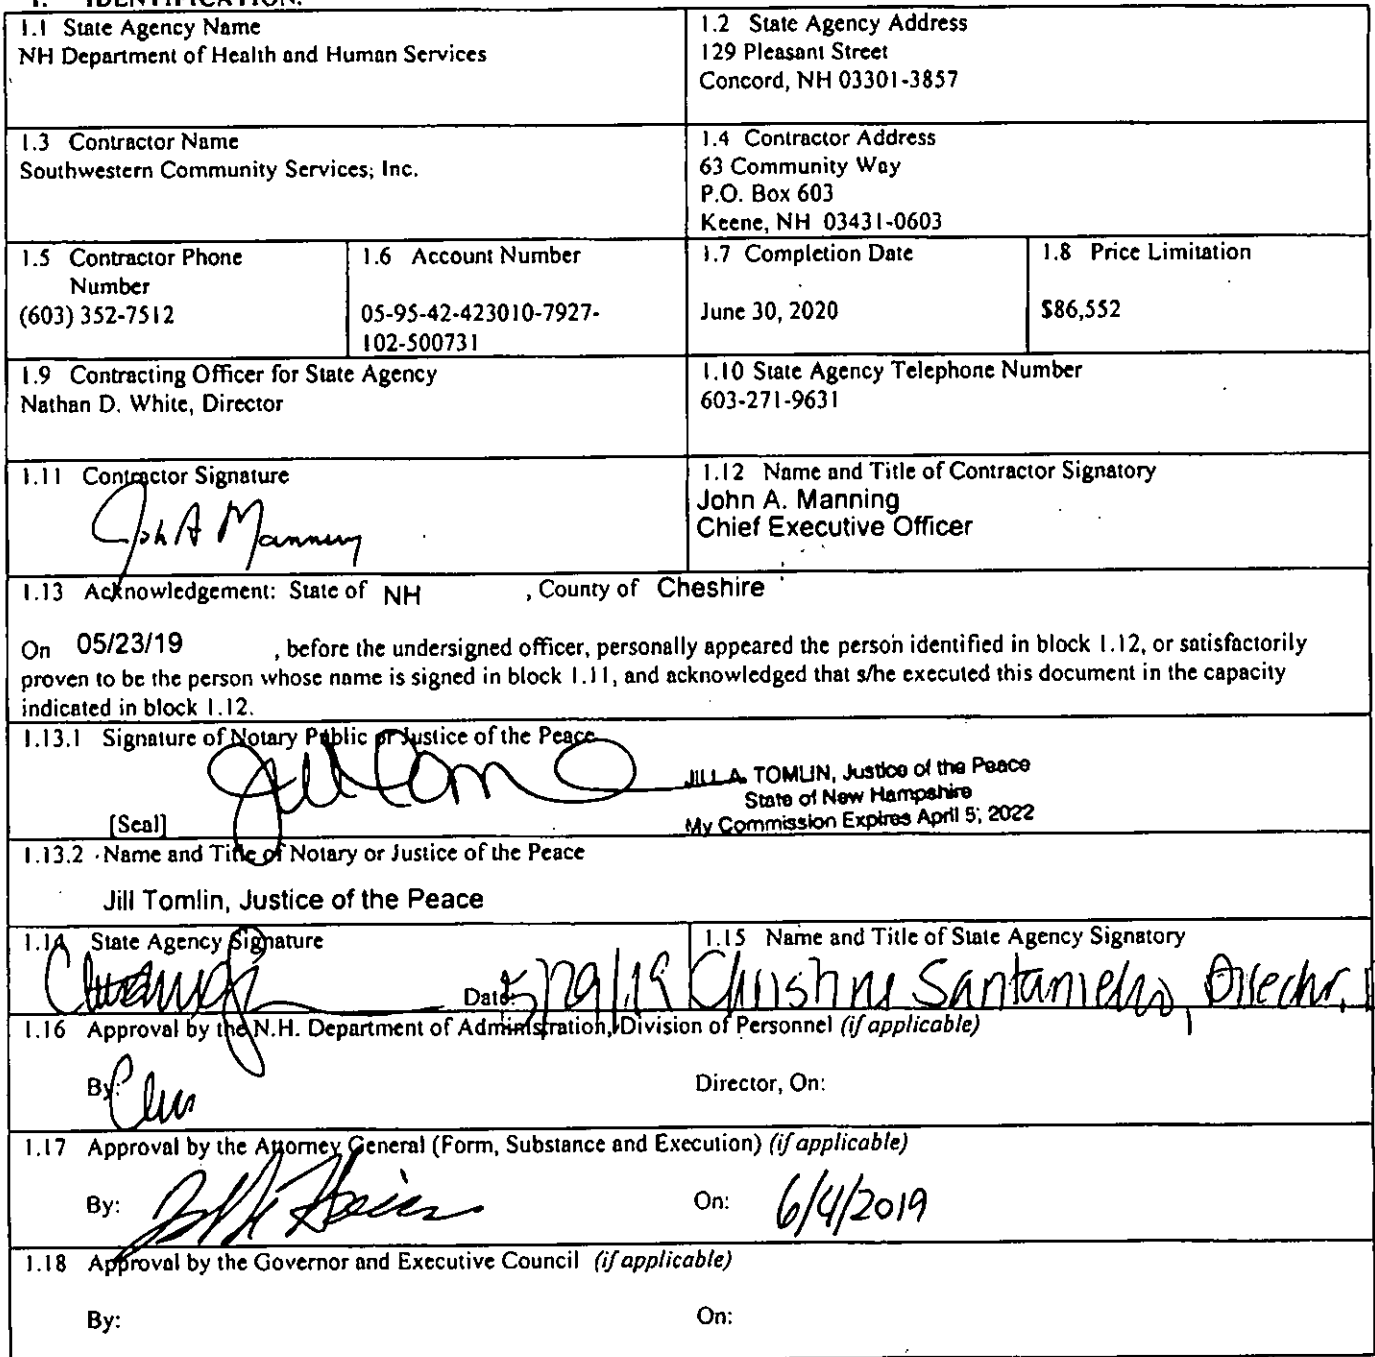 1. IDENTIFICATION.
1.1 State Agency Name
NH Department of Health and Human Services
1.2 State Agency Address
129 Pleasant Street
Concord, NH 03301-3857
1.3 Contractor Name
Southwestern Community Services; Inc.
1.4 Contractor Address
63 Community Way
P.O. Box 603
Keene, NH 03431-0603
1.5 Contractor Phone
Number
(603) 352-7512
1.6 Account Number
05-95-42-423010-7927-
102-500731
1.7 Completion Date
June 30, 2020
1.8 Price Limitation
$86,552
1.9 Contracting Officer for State Agency
Nathan D. White, Director
1.10 State Agency Telephone Number
603-271-9631
1.11 Contractor Signature
John A Manning
1.12 Name and Title of Contractor Signatory
John A. Manning
Chief Executive Officer
1.13 Acknowledgement: State of NH , County of Cheshire
On 05/23/19 , before the undersigned officer, personally appeared the person identified in block 1.12, or satisfactorily
proven to be the person whose name is signed in block 1.11, and acknowledged that s/he executed this document in the capacity
indicated in block 1.12.
1.13.1 Signature of Notary Public or Justice of the Peace
JILL A. TOMLIN, Justice of the Peace
State of New Hampshire
My Commission Expires April 5, 2022
[Seal]
1.13.2 Name and Title of Notary or Justice of the Peace
Jill Tomlin, Justice of the Peace
1.14 State Agency Signature
Date: 5/29/19
1.15 Name and Title of State Agency Signatory
Christine Santaniello, Director,
1.16 Approval by the N.H. Department of Administration, Division of Personnel (if applicable)
By: Director, On:
1.17 Approval by the Attorney General (Form, Substance and Execution) (if applicable)
By: On: 6/4/2019
1.18 Approval by the Governor and Executive Council (if applicable)
By: On: